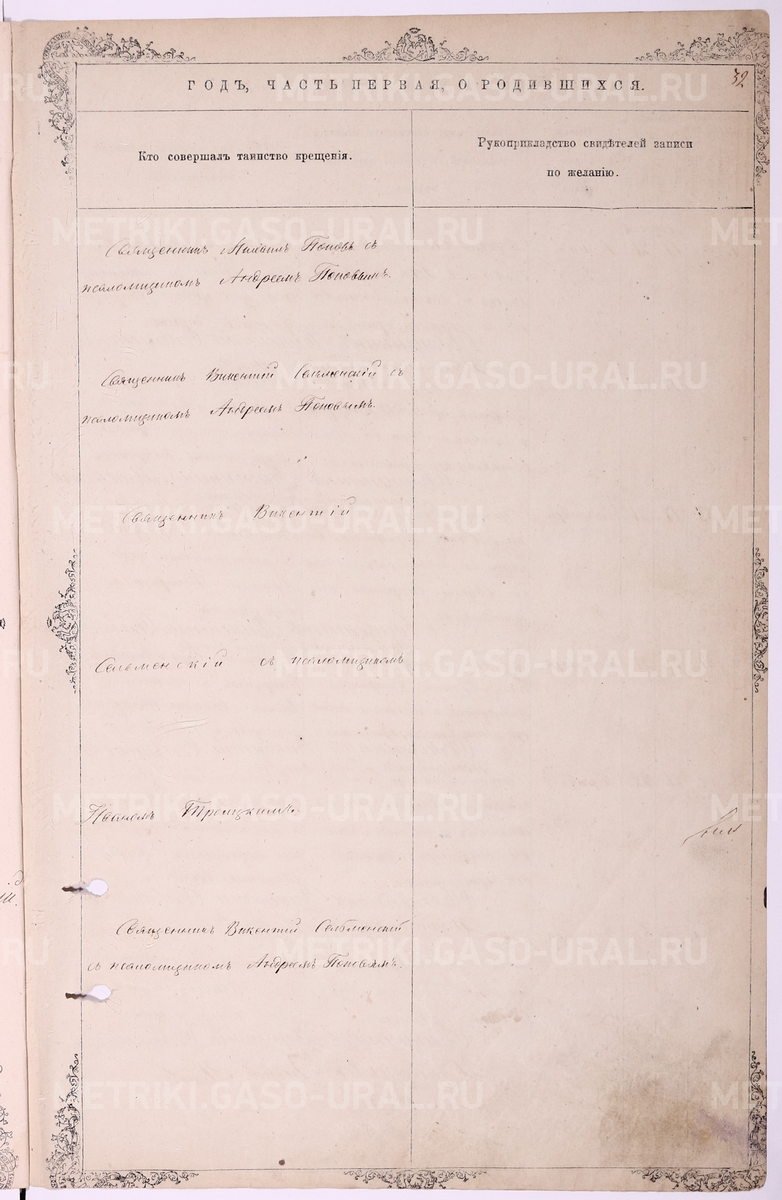 ГОДЪ, ЧАСТЬ ПЕРВАЯ, О РОДИВШИХСЯ.
Кто совершалъ таинство крещенія.
Рукоприкладство свидѣтелей записи
по желанію.
Священникъ Михаилъ Поповъ съ
псаломщикомъ Андреемъ Поповымъ.
Священникъ Викентій Сельменскій съ
псаломщикомъ Андреемъ Поповымъ.
Священникъ Викентій
Сельменскій съ псаломщикомъ
Иваномъ Троицкимъ.
Священникъ Викентій Сельменскій
съ псаломщикомъ Андреемъ Поповымъ.
METRIKI.GASO-URAL.RU